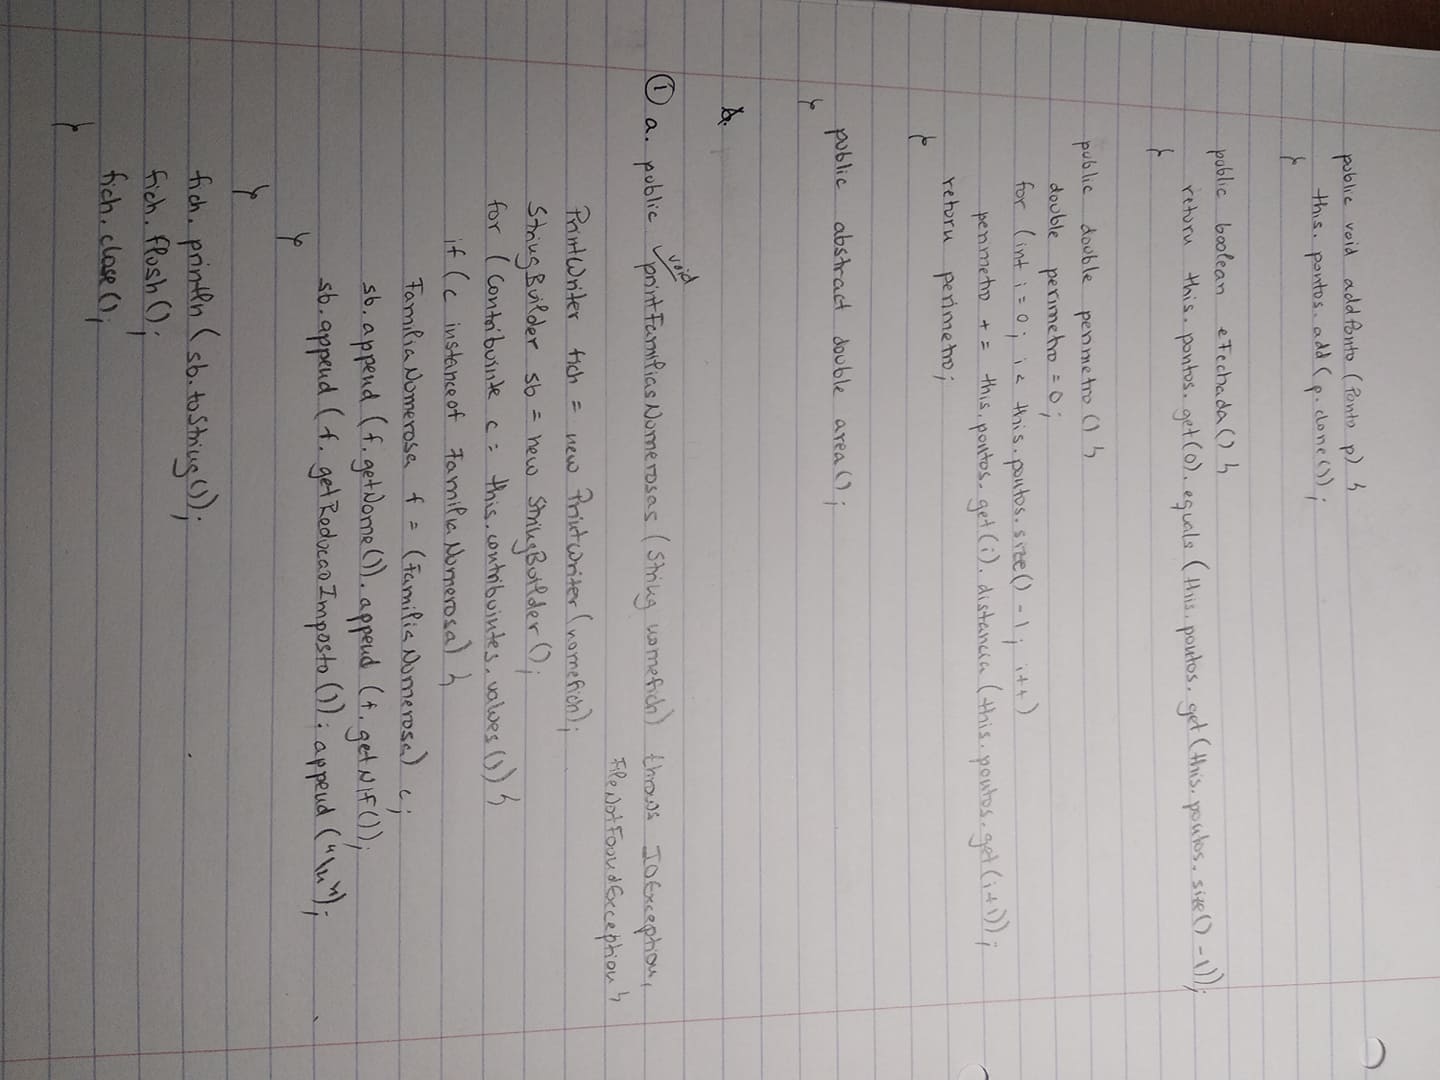 public void addPonto (Ponto p) {
this.pontos.add(p.clone());
}
public boolean eFechada() {
return this.pontos.get(0).equals(this.pontos.get(this.pontos.size()-1));
}
public double perimetro() {
double perimetro = 0;
for (int i = 0; i < this.pontos.size() - 1; i++)
perimetro += this.pontos.get(i).distancia(this.pontos.get(i+1));
return perimetro;
}
public abstract double area();
}
① a. public void printFamiliasNumerosas (String nomefich) throws IOException,
FileNotFoundException {
PrintWriter fich = new PrintWriter(nomefich);
StringBuilder sb = new StringBuilder();
for (Contribuinte c : this.contribuintes.values()) {
if (c instanceof FamiliaNumerosa) {
FamiliaNumerosa f = (FamiliaNumerosa) c;
sb.append(f.getNome()).append(f.getNIF());
sb.append(f.getReducaoImposto()).append("\n");
}
}
fich.println(sb.toString());
fich.flush();
fich.close();
}